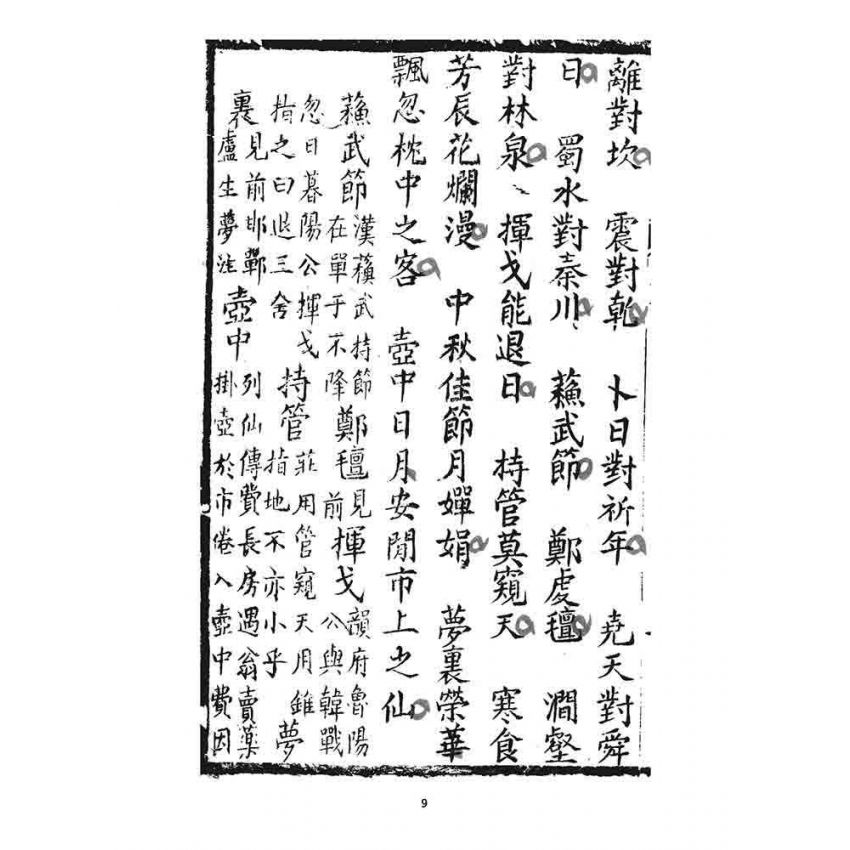 離對坎 震對乾 卜日對祈年 堯天對舜
日 蜀水對秦川 蘓武節 鄭虔氊 澗壑
對林泉、揮戈能退日 持管莫窺天 寒食
芳辰花爛漫 中秋佳節月嬋娟 夢裏榮華
飄忽枕中之客 壺中日月安閒市上之仙
蘓武節 漢蘓武持節在單于不降 鄭氊 見前 揮戈 韻府魯陽公與韓戰
忽日暮陽公揮戈指之曰退三舍 持管 莊用管窺天用錐指地不亦小乎 夢
裏 見前邯鄲盧生夢注 壺中 列仙傳費長房遇翁賣藥掛壺於市倦入壺中費因
9